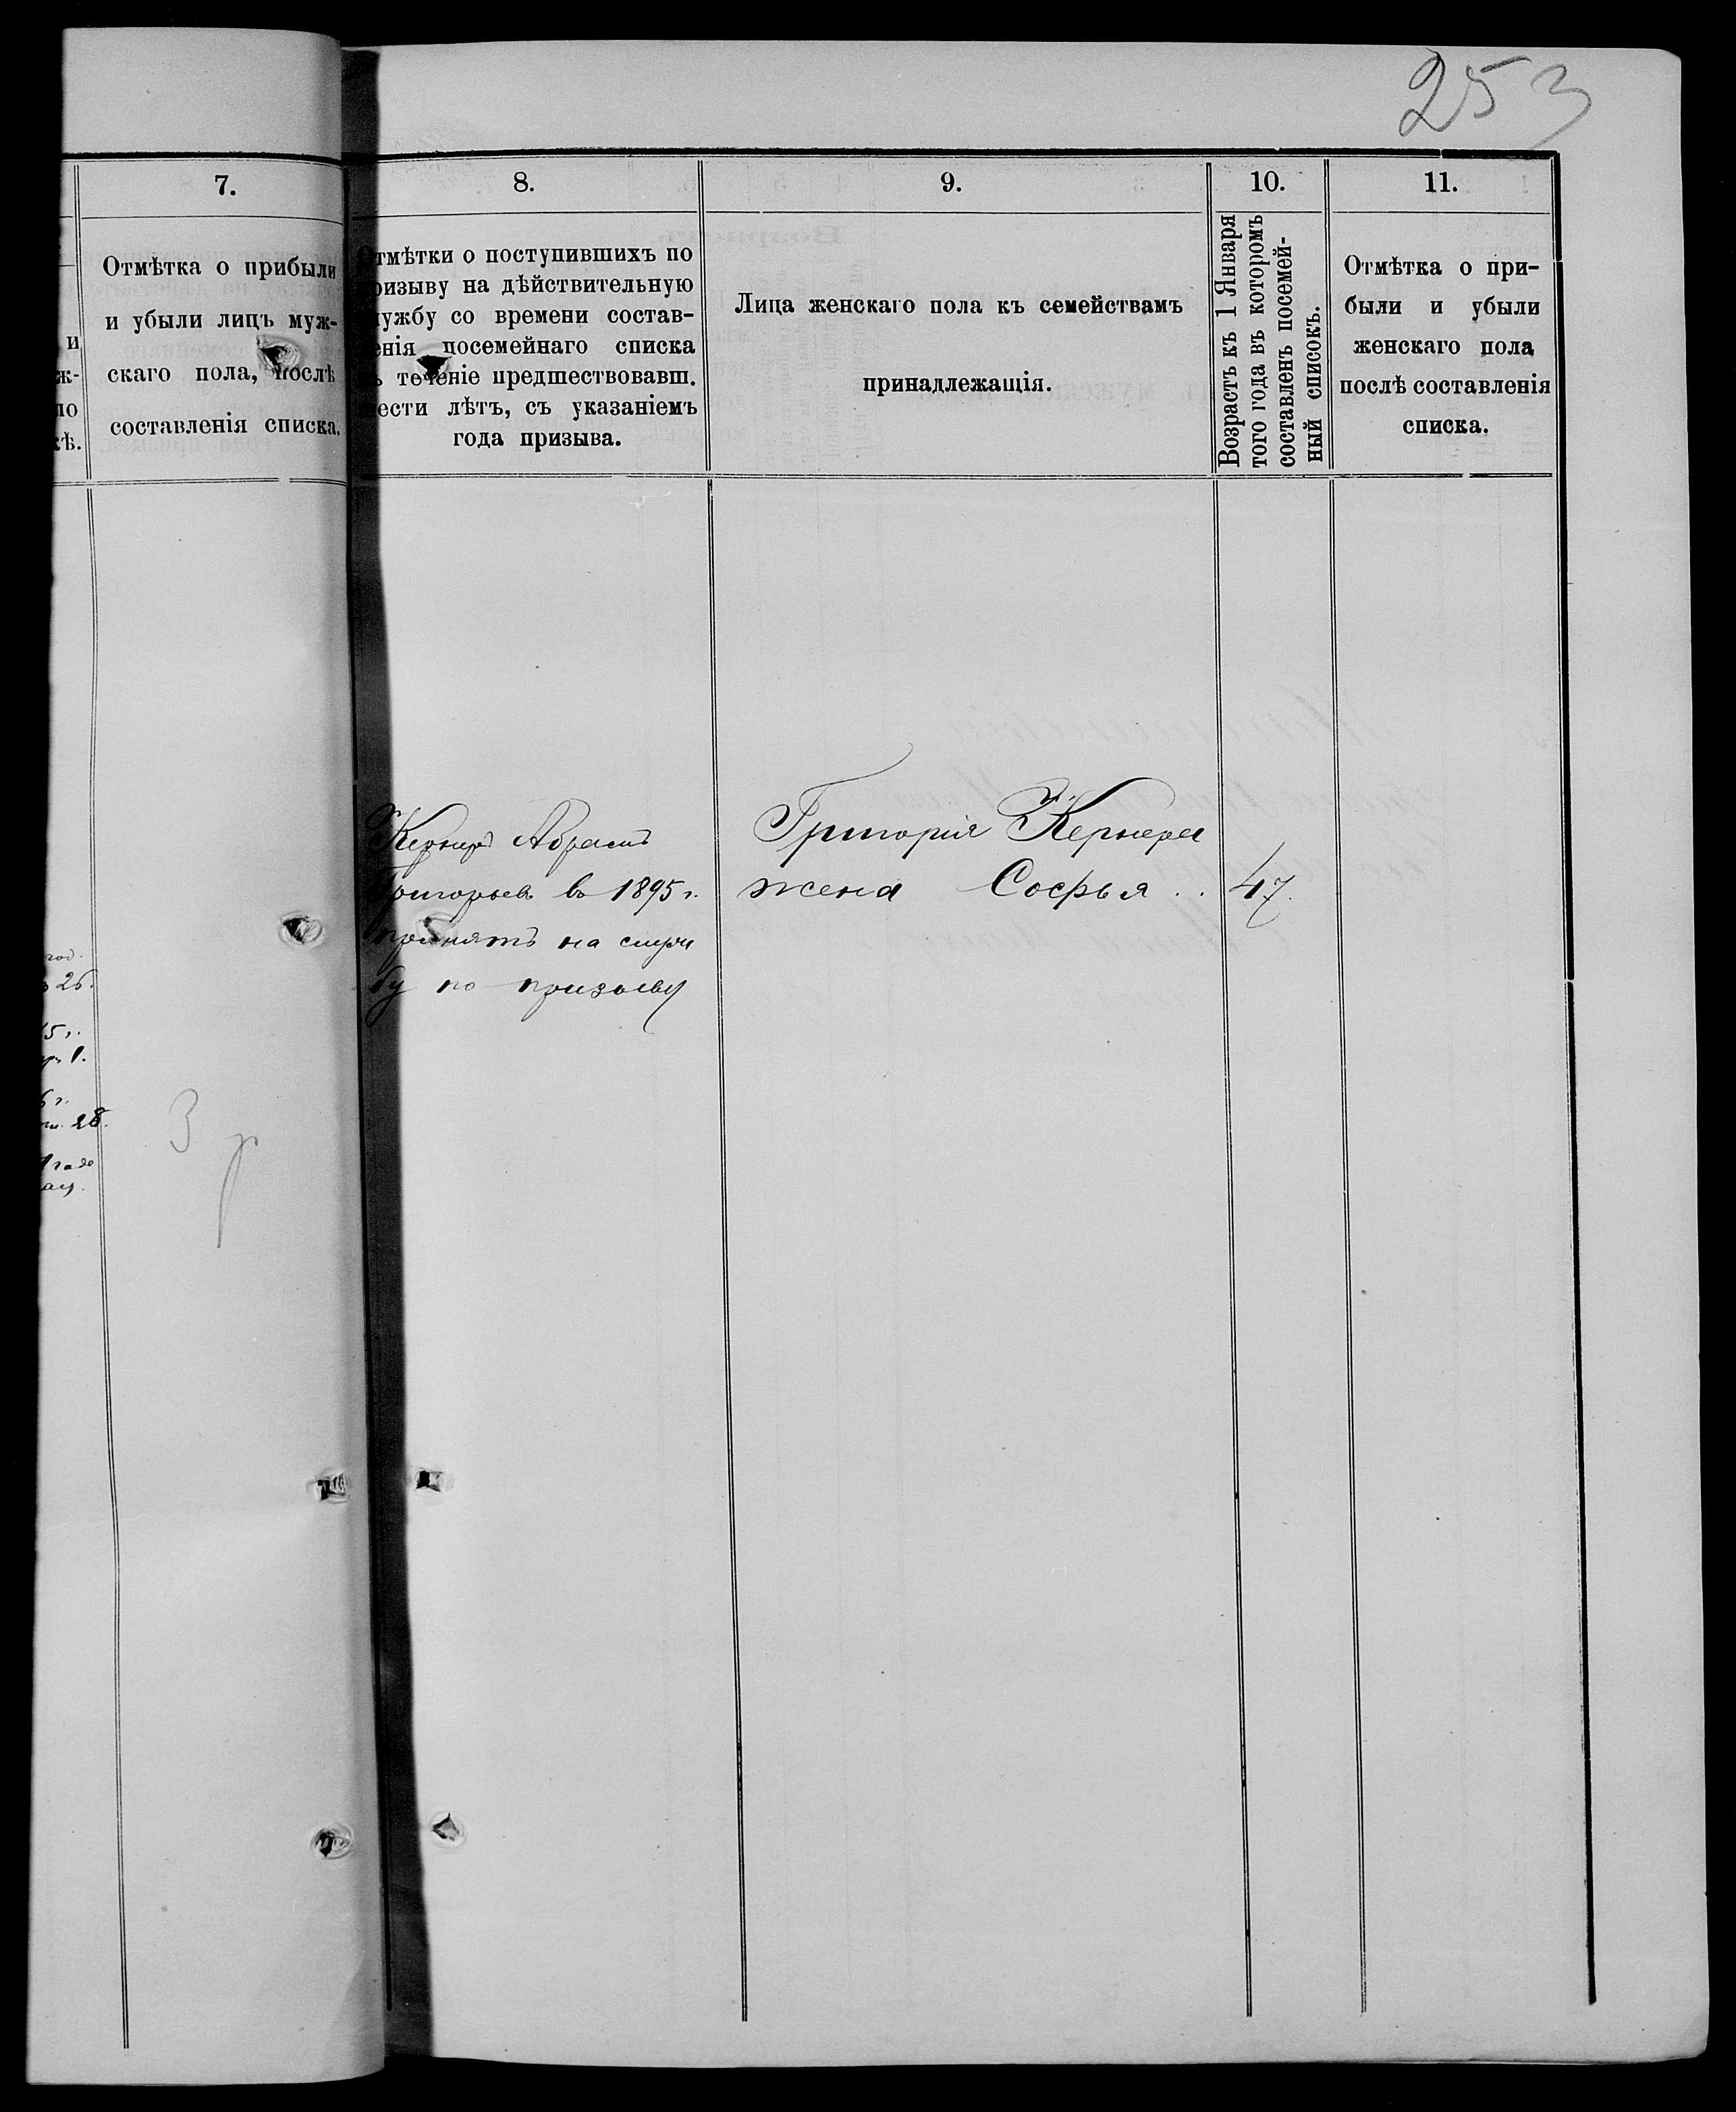 253
7.
Отмѣтка о прибыли
и убыли лицъ муж-
скаго пола, послѣ
составленія списка.
8.
Отмѣтки о поступившихъ по
призыву на дѣйствительную
службу со времени состав-
ленія посемейнаго списка
въ теченіе предшествовавш.
шести лѣтъ, съ указаніемъ
года призыва.
9.
Лица женскаго пола къ семействамъ
принадлежащія.
10.
Возрастъ къ 1 Января
того года въ которомъ
составленъ посемей-
ный списокъ.
11.
Отмѣтка о при-
были и убыли
женскаго пола
послѣ составленія
списка.
Кернеръ Абрамъ
Григорьев в 1895 г.
принятъ на служ
бу по призыву
Григорія Кернера
жена Софья .. 47.
26.
5 г.
1.
6 г.
28.
3 р